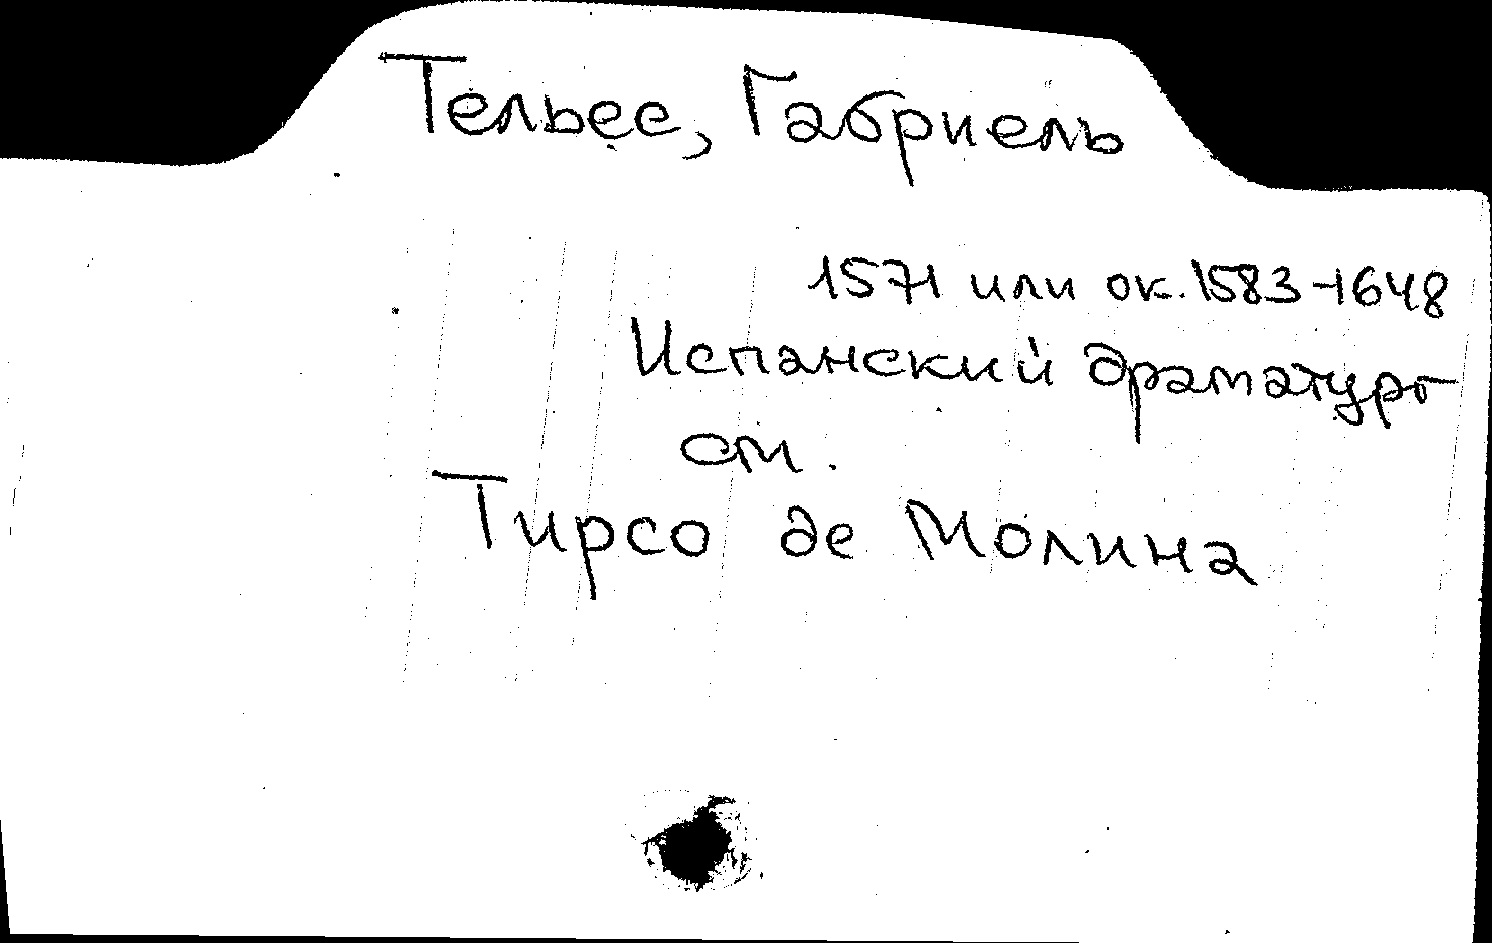 Тельес, Габриель
1571 или ок. 1583-1648
Испанский драматург
см.
Тирсо де Молина